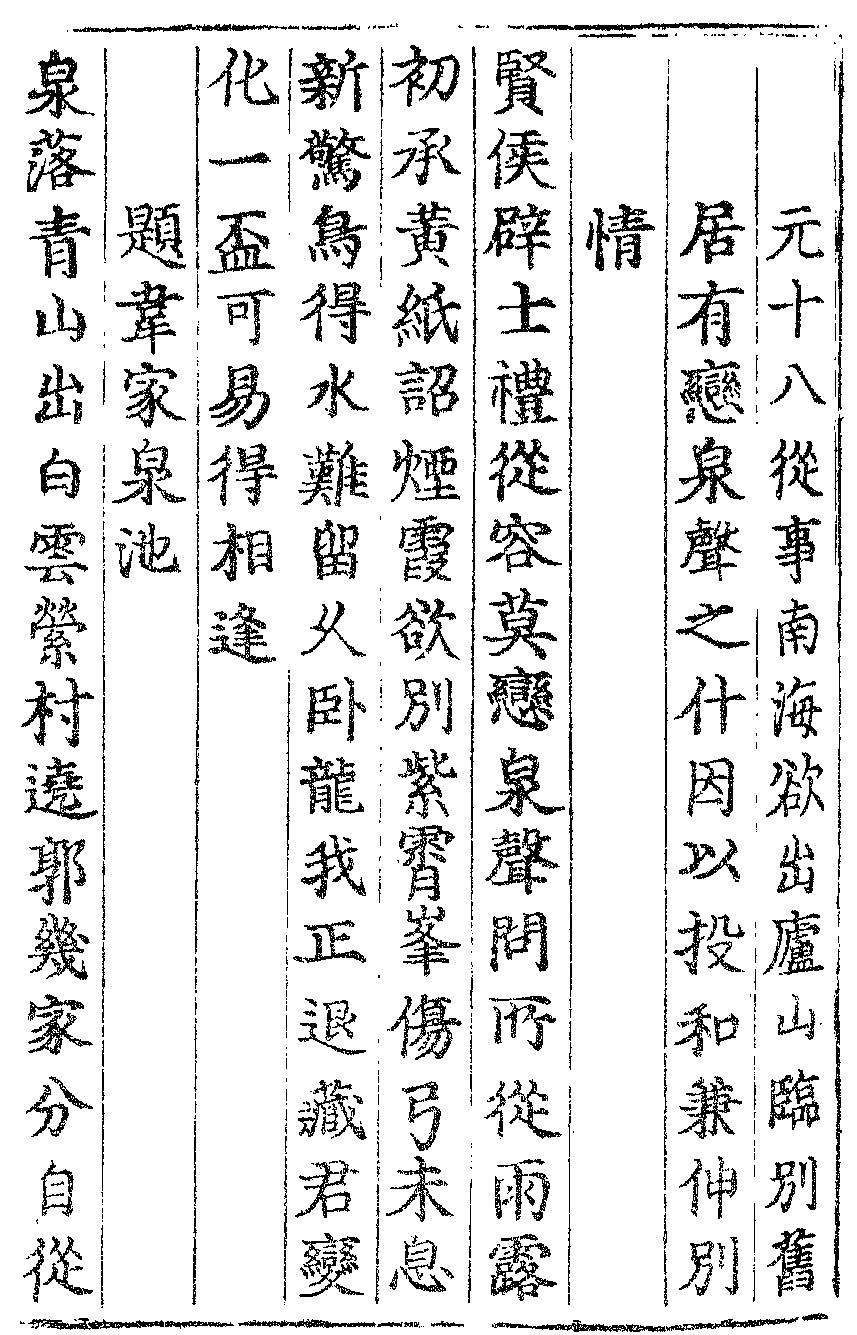 元十八從事南海欲出廬山臨別舊
居有戀泉聲之什因以投和兼伸別
情
賢侯辟士禮從容莫戀泉聲問所從雨露
初承黃紙詔煙霞欲別紫霄峯傷弓未息
新驚鳥得水難留久卧龍我正退藏君變
化一盃可易得相逢
題韋家泉池
泉落青山出白雲縈村遶郭幾家分自從